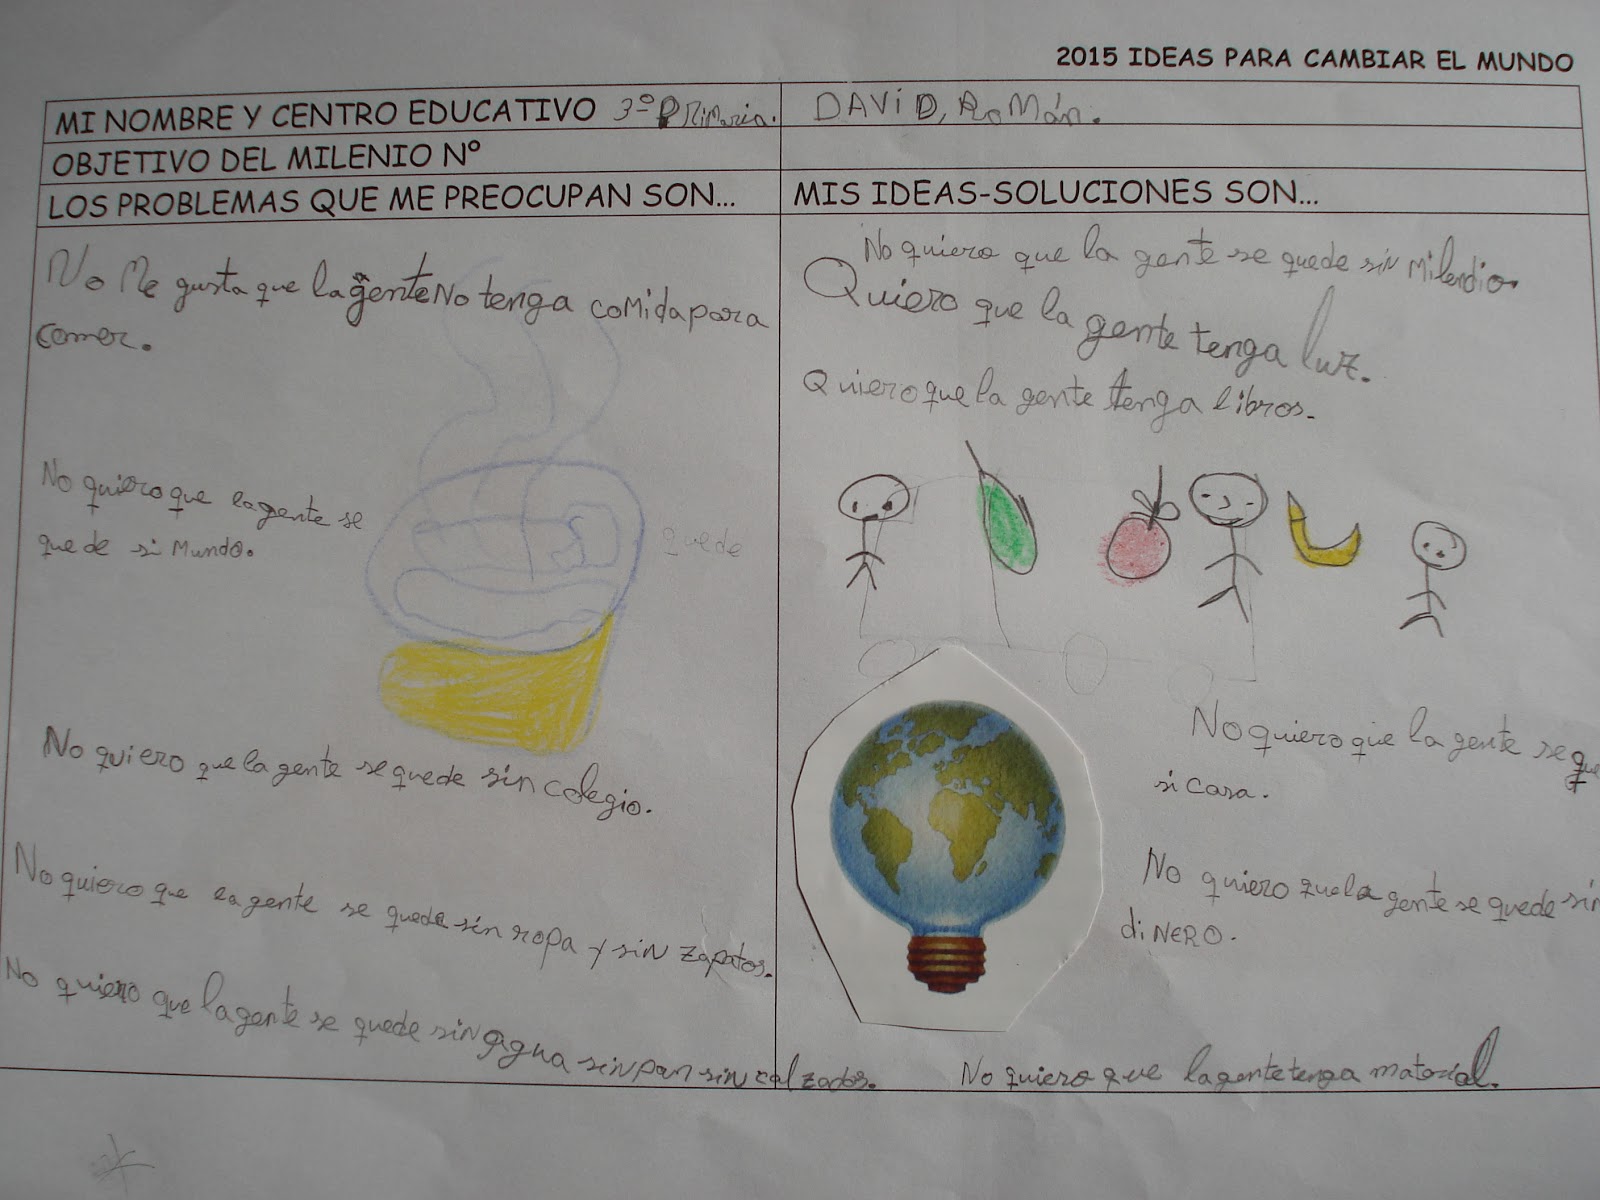 2015 IDEAS PARA CAMBIAR EL MUNDO
MI NOMBRE Y CENTRO EDUCATIVO 3º PRiMaria. DAViD, RoMán.
OBJETIVO DEL MILENIO Nº
LOS PROBLEMAS QUE ME PREOCUPAN SON...
No Me gusta que la gente No tenga coMida para
comer.
No quiero que la gente se
quede si Mundo.
quede
No quiero que la gente se quede sin colegio.
No quiero que la gente se quede sin ropa y sin zapatos.
No quiero que la gente se quede sin agua sin pan sin calzados.
MIS IDEAS-SOLUCIONES SON...
No quiero que la gente se quede sin
Quiero que la gente tenga luz.
Quiero que la gente tenga libros.
No quiero que la gente se que
si casa.
No quiero que la gente se quede sin
diNERO.
No quiero que la gente tenga